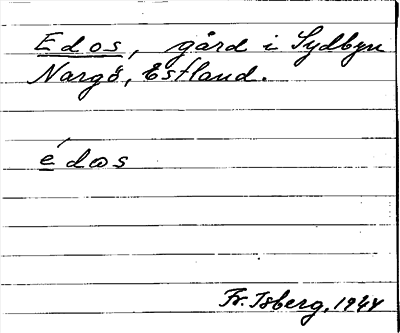 Edos, gård i Sydbyn
Nargö, Estland.
édωs
Fr. Isberg, 1944